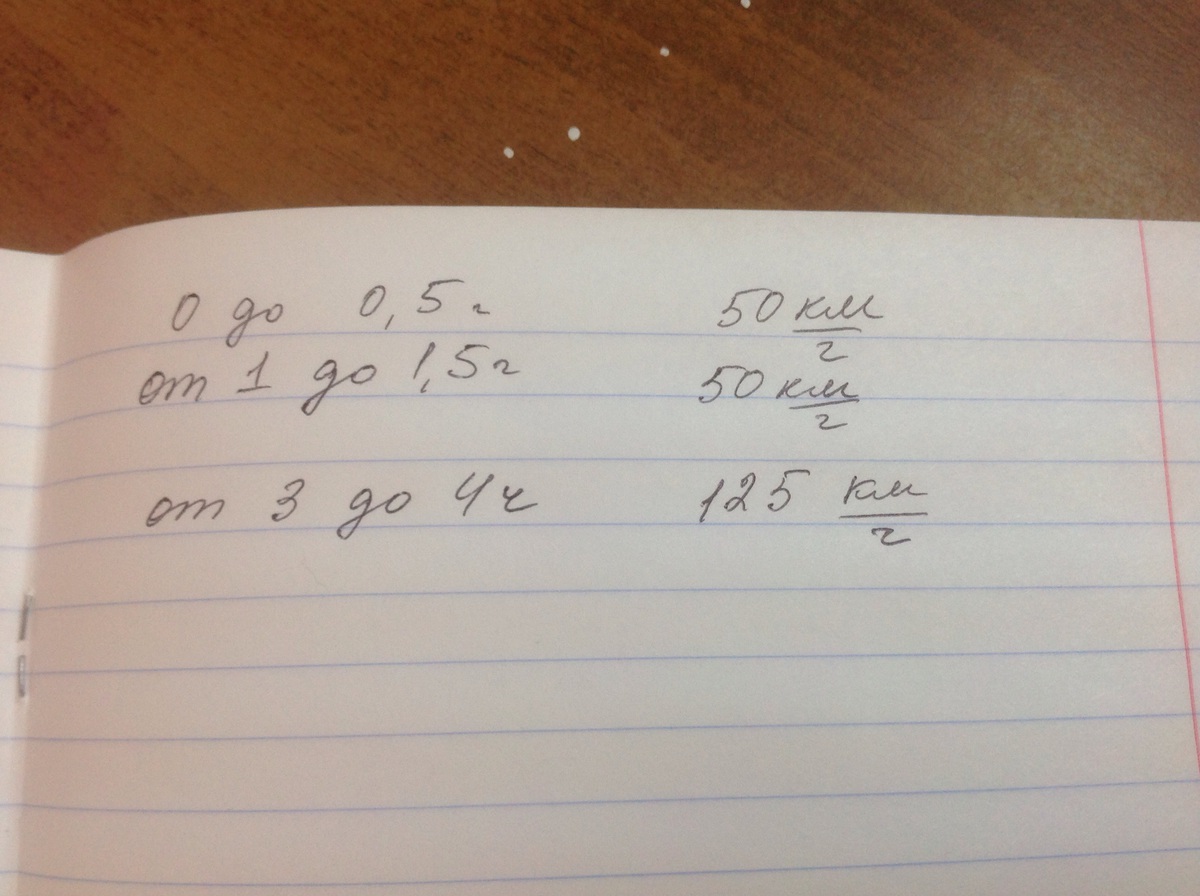 0 до 0,5ч 50 км/ч
от 1 до 1,5ч 50 км/ч
от 3 до 4ч 125 км/ч